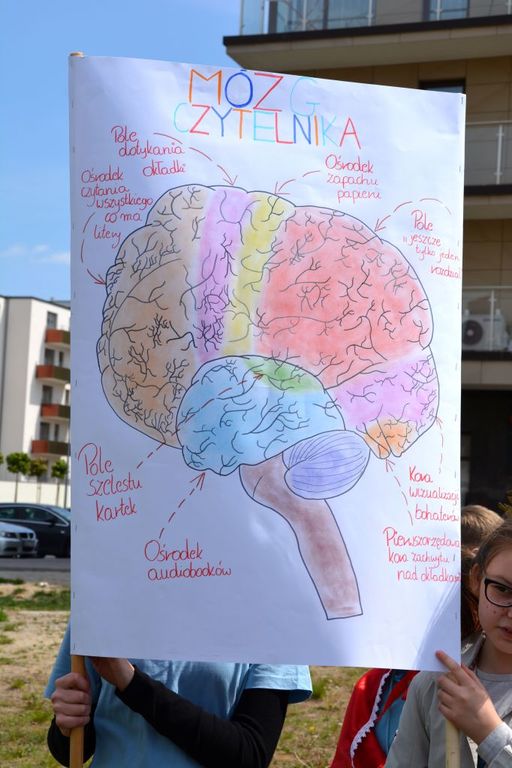 MÓZG
CZYTELNIKA
Pole
dotykania
okładki
Ośrodek
zapachu
papieru
Ośrodek
czytania
wszystkiego
co ma
litery
Pole
"jeszcze
tylko jeden
rozdział
Pole
szelestu
kartek
Ośrodek
audiobooków
Kora
wizualizacji
bohaterów
Pierwszorzędowa
kora zachwytu
nad okładkami